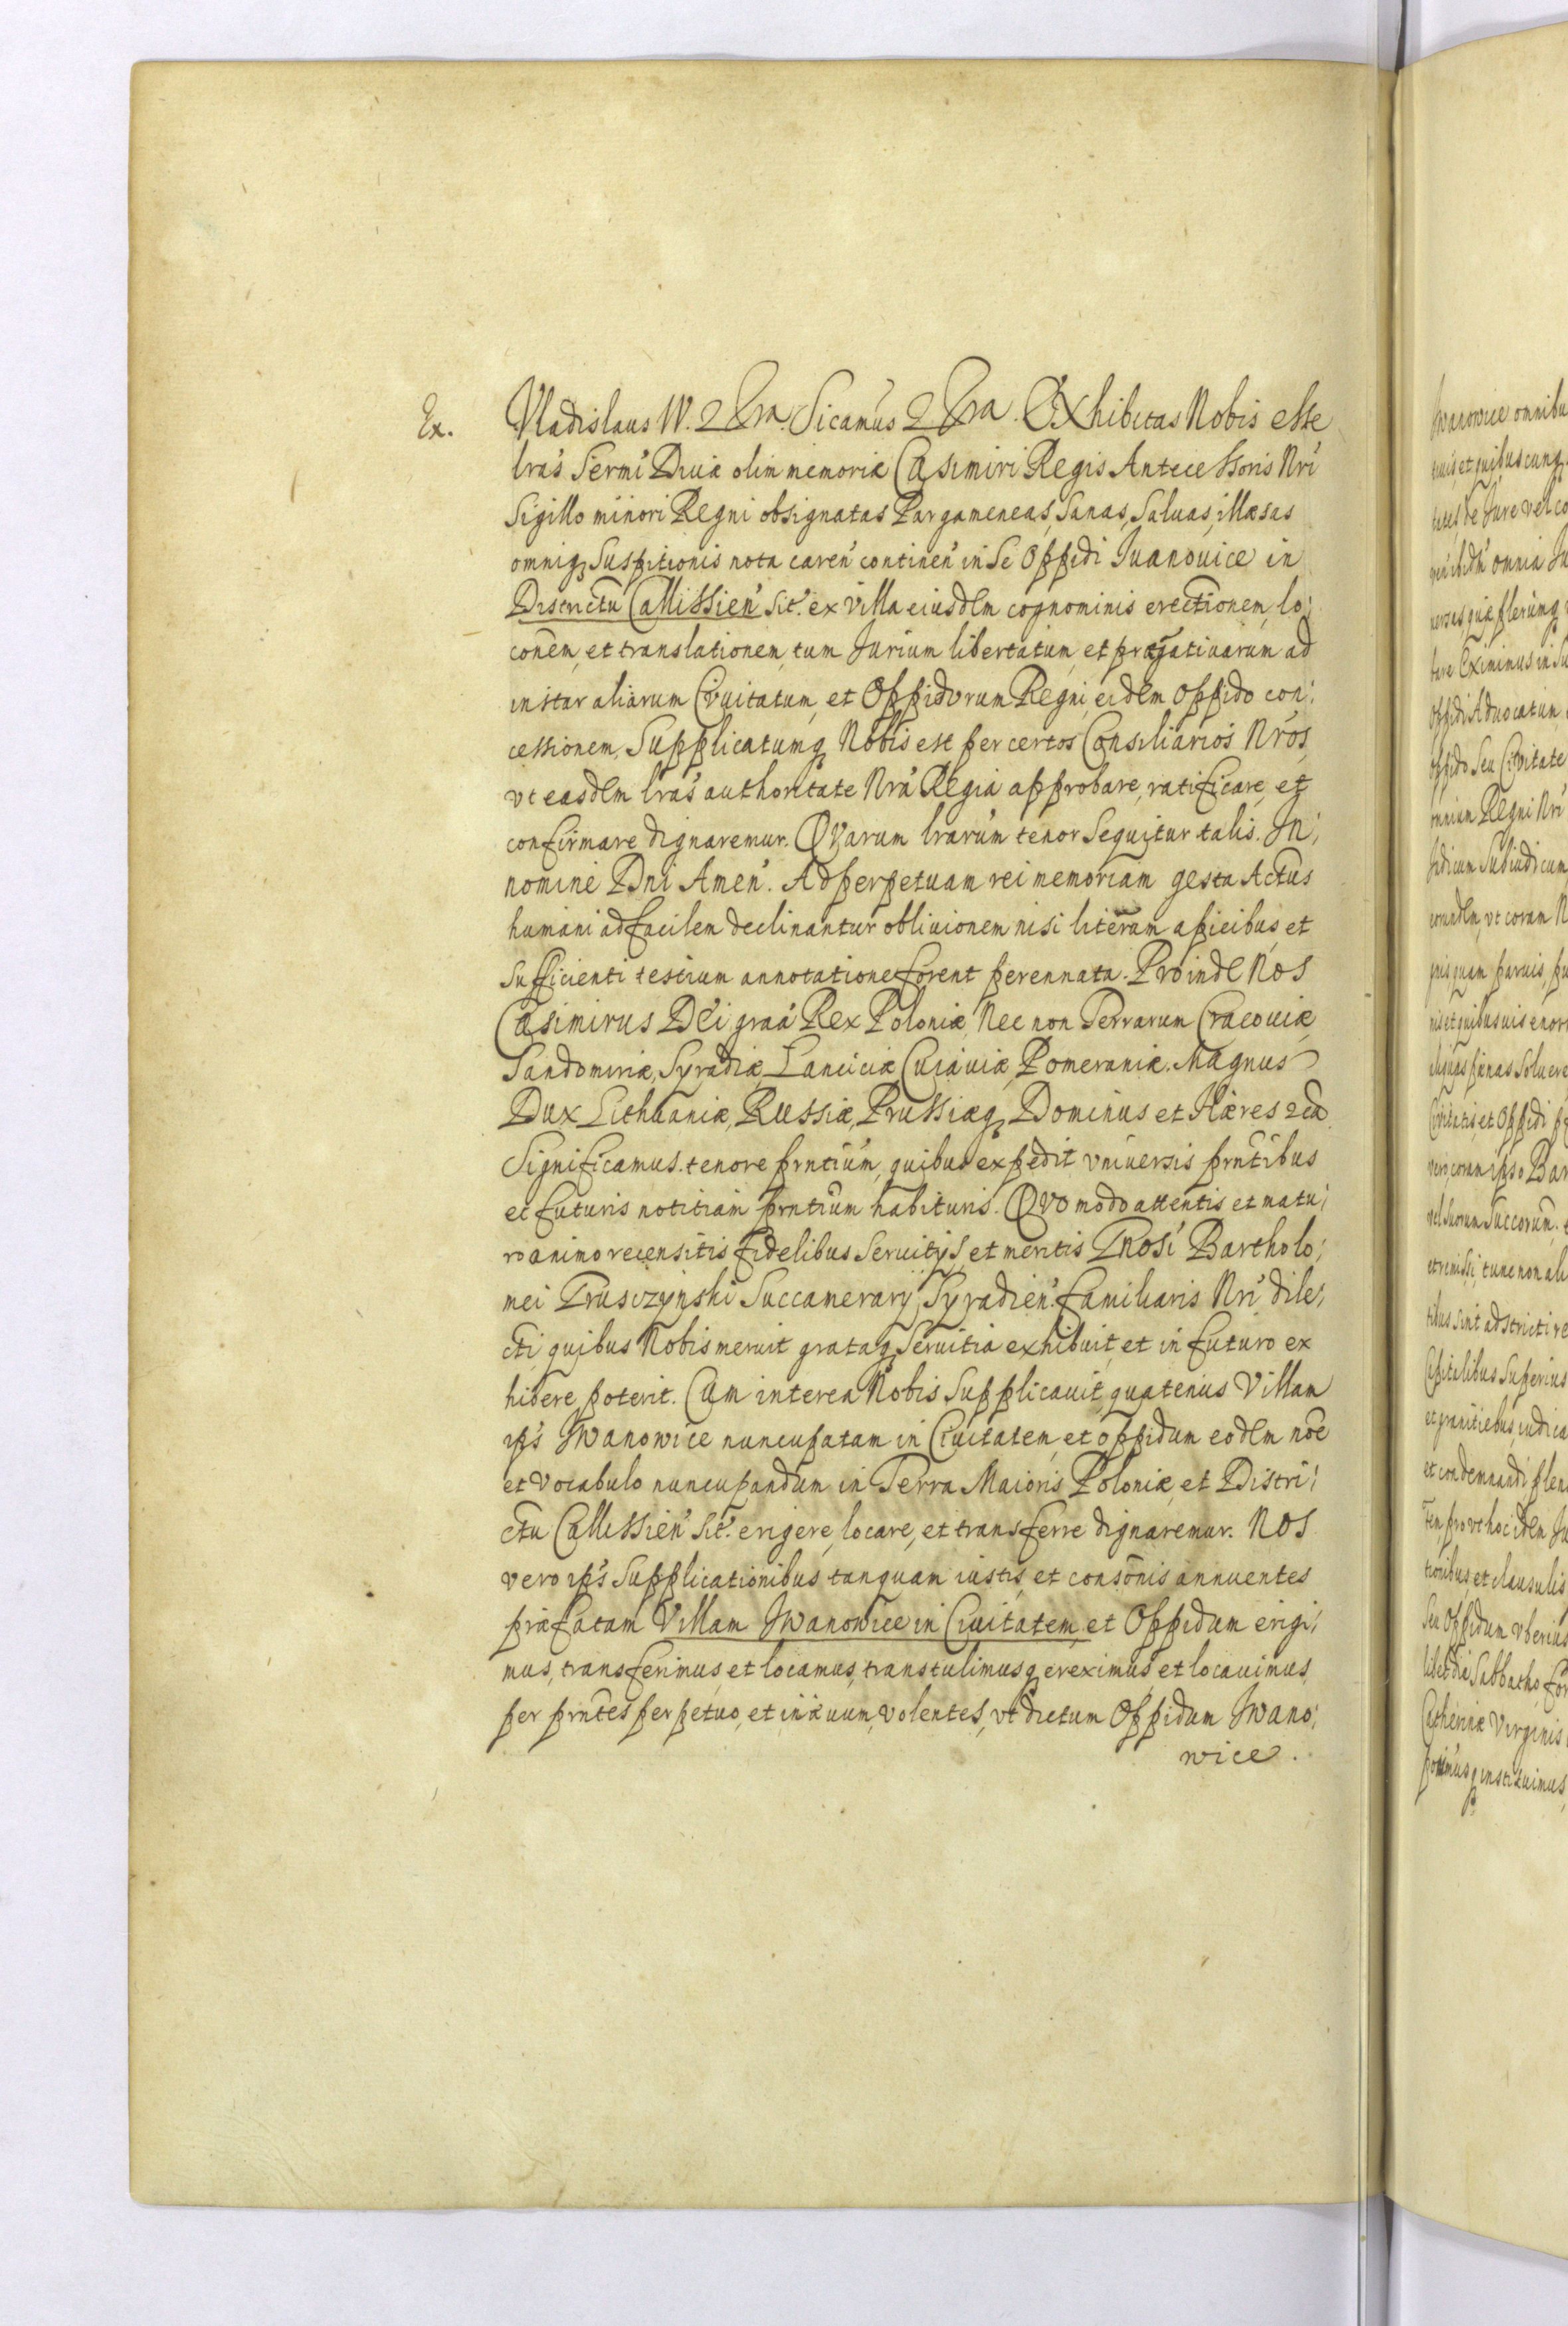 Ex.
Vladislaus IV. 2 Xra. Sicamus 2 Xra. EXhibitas Nobis esse
lras Sermi Diuæ olim memoriæ Casimiri Regis Antecessoris Nri
Sigillo minori Regni obsignatas Pargameneas, Sanas, Saluas, illæsas
omniq; Suspitionis nota caren' continen' in Se Oppidi Iuanouice in
Districtu Callissien' Sit. ex Villa eiusdem cognominis erectionem, lo:
conem, et translationem, tum Jurium libertatum, et prærogatiuarum ad
instar aliarum Civitatum, et Oppidorum Regni, eidem Oppido con:
cessionem, Supplicatumq; Nobis est per certos Consiliarios Nros,
vt easdem lras authoritate Nra Regia approbare, ratificare, et
confirmare dignaremur. QVarum lrarum tenor Sequitur talis. In:
nomine Dni Amen. Ad perpetuam rei memoriam gesta Actus
humani ad facilem declinantur obliuionem nisi literarum apicibus, et
Sufficienti testium annotatione forent perennata. Proinde Nos
Casimirus Dei graa Rex Poloniæ, Nec non Terrarum Cracouiæ,
Sandomiriæ, Syradiæ, Lanciciæ, Cuiauiæ, Pomeraniæ. Magnus
Dux Lithuaniæ, Russiæ, Prussiæq; Dominus et Hæres 2ca
Significamus. tenore prntium, quibus expedit vniuersis prntibus
et futuris notitiam prntium habituris. QVo modo attentis et matu:
ro animo recensitis fidelibus Seruitijs, et meritis Gnosi Bartholo:
mei Prusczynski Succamerarij Syradien' familiaris Nri dile:
cti, quibus Nobis meruit grataq; Seruitia exhibuit, et in futuro ex
hibere poterit. Cum interea Nobis Supplicauit, quatenus Villam
ips Iwanowice nuncupatam in Ciuitatem, et oppidum eodem noe
et vocabulo nuncupandum in Terra Maioris Poloniæ, et Distri:
ctu Callissien' Sit. erigere, locare, et transferre dignaremur. Nos
vero ips Supplicationibus tanquam iustis, et consonis annuentes
præfatam Villam Iwanowice in Ciuitatem, et Oppidum erigi:
mus, transferimus, et locamus, transtulimusq; ereximus, et locauimus,
per prntes perpetuo, et in æuum, volentes, vt dictum Oppidum Iwano:
wice.